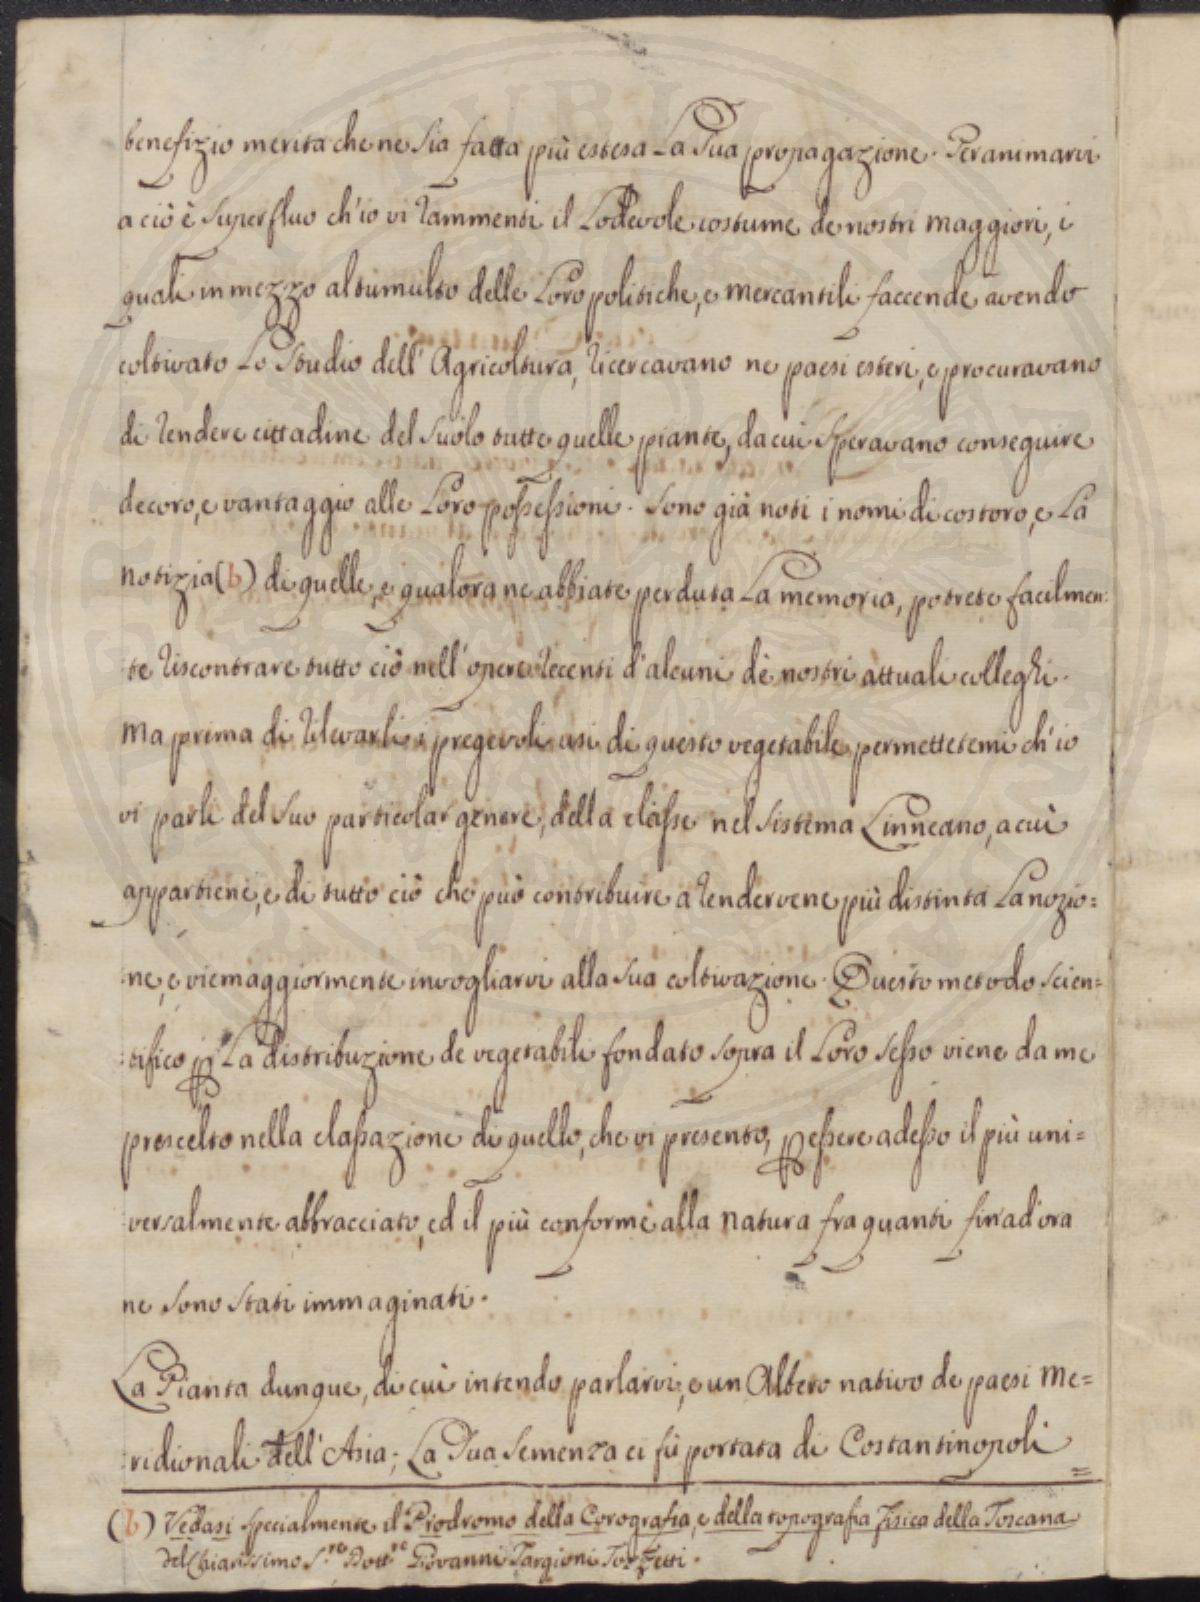 benefizio merita che ne sia fatta più estesa La Sua propagazione. Per animarvi
a ciò è Superfluo ch'io vi Rammenti il Lodevole costume de nostri maggiori, i
quali in mezzo al tumulto delle Loro politiche, e mercantili faccende avendo
coltivato Lo Studio dell' Agricoltura, Ricercavano ne paesi esteri, e procuravano
di Rendere cittadine del Suolo tutte quelle piante, da cui Speravano conseguire
decoro, e vantaggio alle Loro possessioni. Sono già noti i nomi di costoro, e La
notizia (b) di quelle, e qualora ne abbiate perduta La memoria, potrete facilmen:
:te Riscontrare tutto ciò nell' opere Recenti d'alcuni dè nostri attuali colleghi.
Ma prima di Rilevarli i pregevoli usi di questo vegetabile, permettetemi ch'io
vi parli del Suo particolar genere, della classe nel Sistema Linneano, a cui
appartiene, e di tutto ciò che può contribuire a Rendervene più distinta La nozio=
:ne, e viemaggiormente invogliarvi alla Sua coltivazione. Questo metodo Scien=
:tifico ꝑ La distribuzione de vegetabili fondato sopra il Loro Sesso viene da me
prescelto nella classazione di quello, che vi presento, ꝑ essere adesso il più uni=
:versalmente abbracciato, ed il più conforme alla natura fra quanti fin'ad'ora
ne Sono Stati immaginati.
La Pianta dunque, di cui intendo parlarvi, e un Albero nativo de paesi Me=
:ridionali dell' Asia; La Sua Semenza ci fù portata di Costantinopoli =
(b) Vedasi specialmente il Prodromo della Corografia, e della topografia Fisica della Toscana
del Chiarissimo S.re Dott.re Giovanni Targioni Tozzetti.